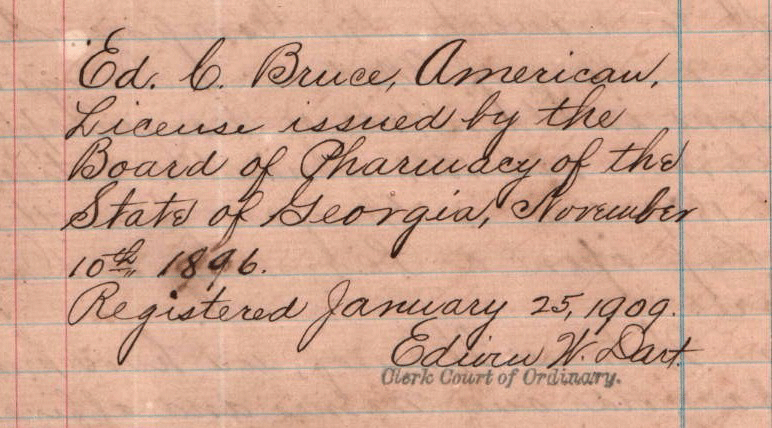 Ed. C. Bruce, American.
License issued by the
Board of Pharmacy of the
State of Georgia, November
10th, 1896.
Registered January 25, 1909.
Edwin W. Dart.
Clerk Court of Ordinary.